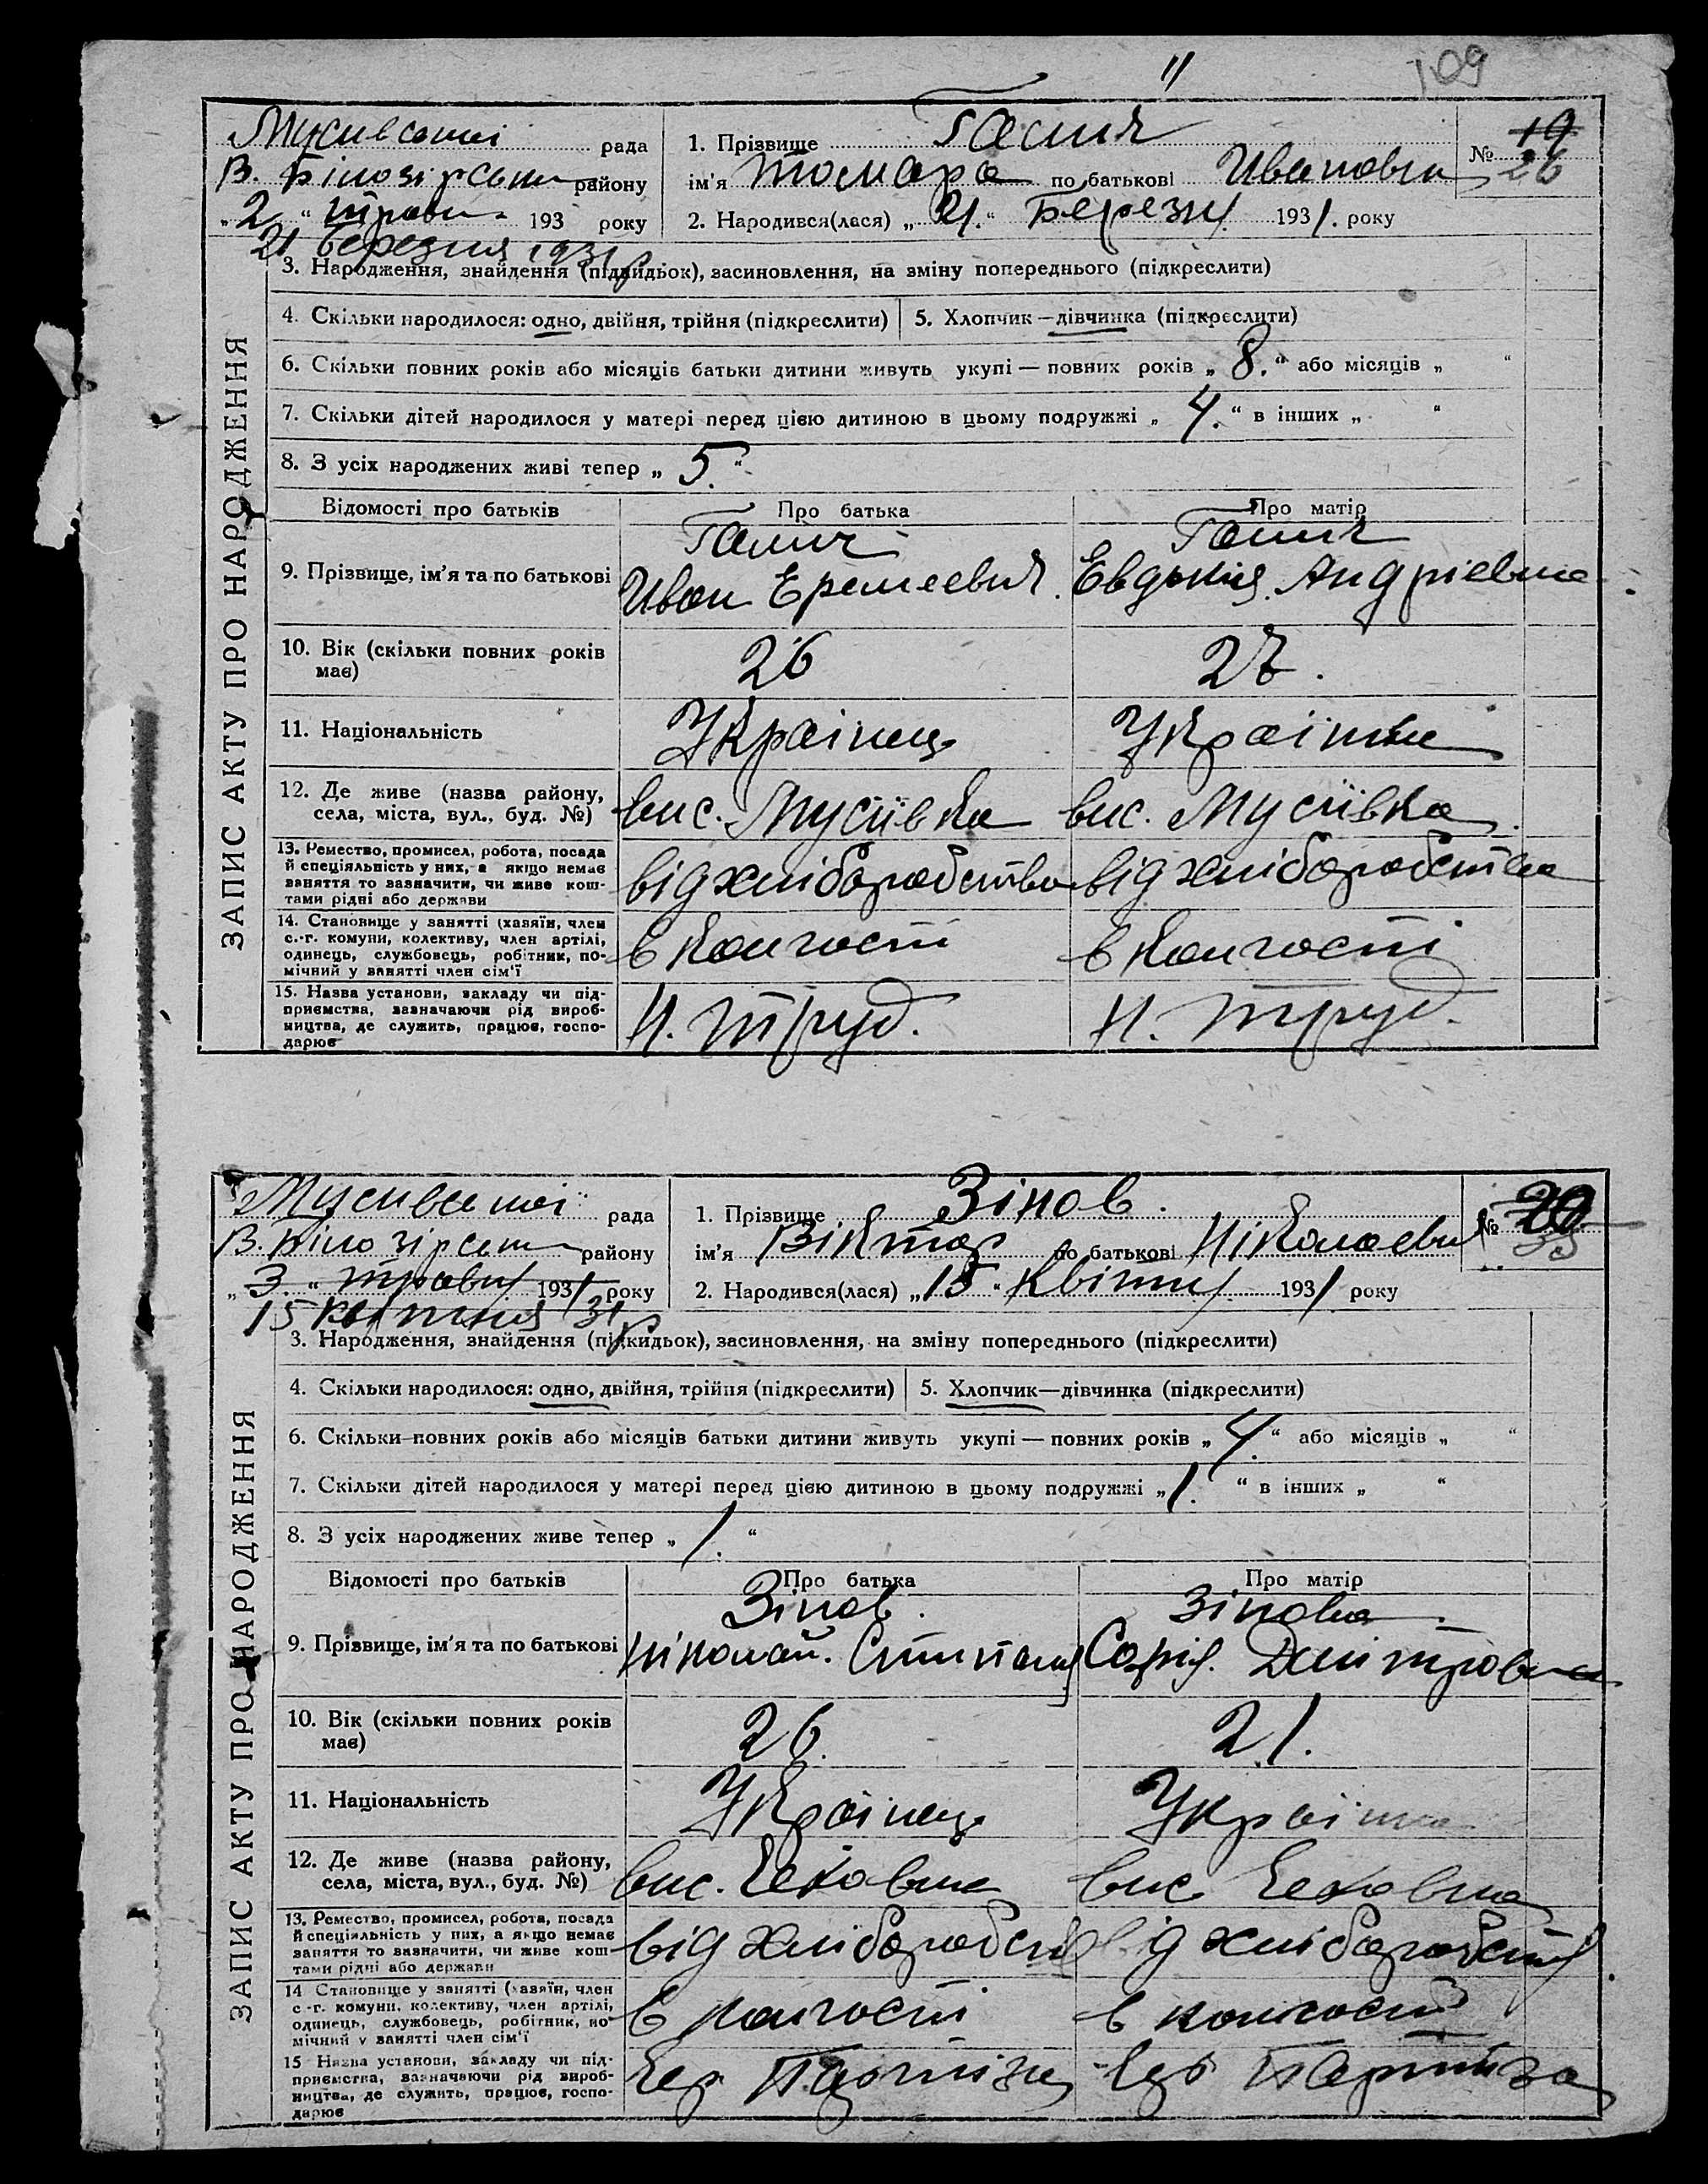 109
Мусивської рада
В. Білозірськ району
„ 2 “ травн 193 року
21 березня 1931 р
1. Прізвище Галич
ім'я Томара по батькові Ивановна
2. Народився(лася) „ 21. “ Березня 1931. року
№ 19
26
ЗАПИС АКТУ ПРО НАРОДЖЕННЯ
3. Народження, знайдення (підкидьок), засиновлення, на зміну попереднього (підкреслити)
4. Скільки народилося: одно, двійня, трійня (підкреслити) 5. Хлопчик—дівчинка (підкреслити)
6. Скільки повних років або місяців батьки дитини живуть укупі — повних років „ 8. “ або місяців „ “
7. Скільки дітей народилося у матері перед цією дитиною в цьому подружжі „ 4. “ в інших „ “
8. З усіх народжених живі тепер „ 5. “
Відомості про батьків Про батька Про матір
9. Прізвище, ім'я та по батькові Галич Иван Еремеевич Галич Евдокія Андріевна
10. Вік (скільки повних років має) 26 27.
11. Національність Українець Українка
12. Де живе (назва району, села, міста, вул., буд. №) вис. Мусіївка вис. Мусіївка
13. Ремество, промисел, робота, посада
й спеціяльність у них, а якщо немає
заняття то зазначити, чи живе кош-
тами рідні або держави
від хліборобства від хліборобства
14. Становище у занятті (хазяїн, член
с.-г. комуни, колективу, член артілі,
одинець, службовець, робітник, по-
мічний у занятті член сім'ї
в колгоспі в колгоспі
15. Назва установи, закладу чи під-
приємства, зазначаючи рід вироб-
ництва, де служить, працює, госпо-
дарює
Н. труд. Н. труд.
Мусивської рада
В. Білозірськ району
„ 3. “ травня 1931 року
15 квітня 31 р
1. Прізвище Зінов.
ім'я Віктор по батькові Ніколаевич
2. Народився(лася) „ 15 “ Квітня 1931 року
№ 20
ЗАПИС АКТУ ПРО НАРОДЖЕННЯ
3. Народження, знайдення (підкидьок), засиновлення, на зміну попереднього (підкреслити)
4. Скільки народилося: одно, двійня, трійня (підкреслити) 5. Хлопчик—дівчинка (підкреслити)
6. Скільки повних років або місяців батьки дитини живуть укупі — повних років „ 4. “ або місяців „ “
7. Скільки дітей народилося у матері перед цією дитиною в цьому подружжі „ 1. “ в інших „ “
8. З усіх народжених живе тепер „ 1. “
Відомості про батьків Про батька Про матір
9. Прізвище, ім'я та по батькові Зінов. Ніколай. Зінова. Софія. Дмітровна
10. Вік (скільки повних років має) 26. 21.
11. Національність Українець Українка
12. Де живе (назва району, села, міста, вул., буд. №) вис. Чеховка вис. Чеховка
13. Ремество, промисел, робота, посада
й спеціяльність у них, а якщо немає
заняття то зазначити, чи живе кош-
тами рідні або держави
від хліборобств від хліборобств
14 Становище у занятті (хазяїн, член
с-г. комуни, колективу, член артілі,
одинець, службовець, робітник, по-
мічний у занятті член сім'ї
в колгоспі в колгоспі
15 Назва установи, закладу чи під-
приємства, зазначаючи рід вироб-
ництва, де служить, працює, госпо-
дарює
Чер. Партіза Чер Партиза